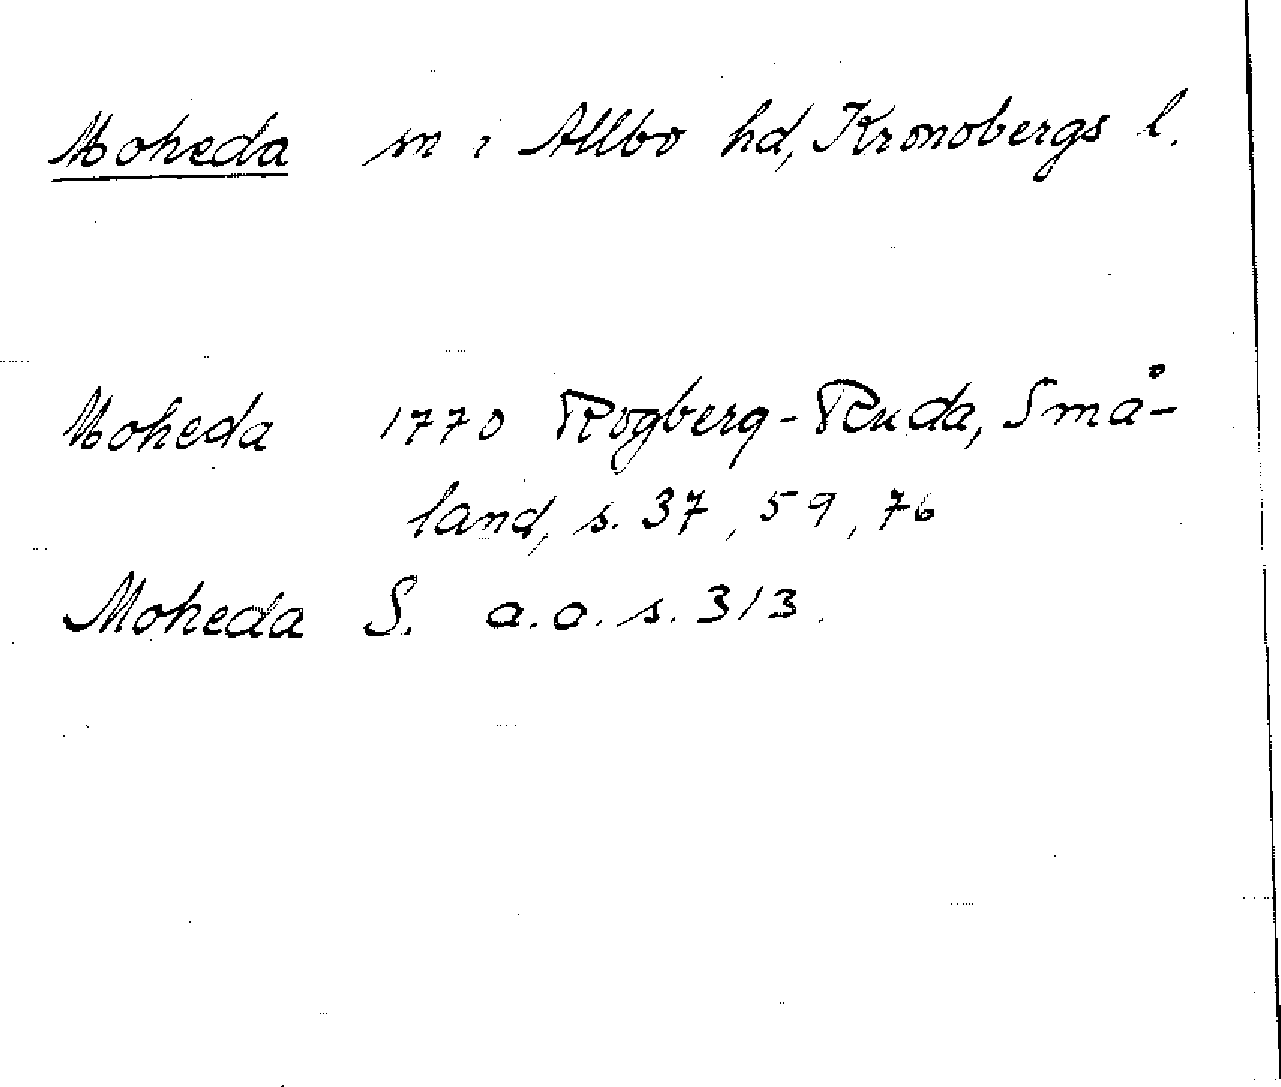 Moheda sn i Allbo hd, Kronobergs l.
Moheda 1770 Rogberg-Ruda, Små-
land, s. 37, 59, 76
Moheda S. a.a. s. 313.